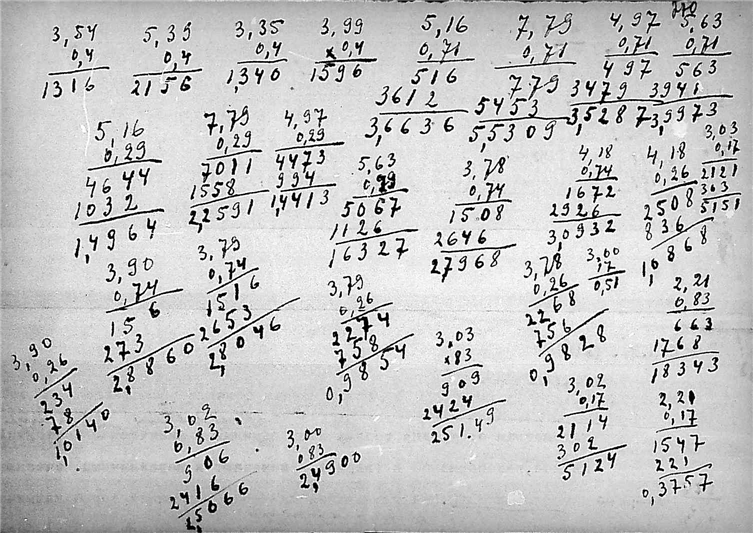 3,54
0,4
1316
5,39
0,4
2156
3,35
0,4
1,340
3,99
x 0,4
1596
5,16
0,71
516
3612
3,6636
7,79
0,71
779
5453
5,5309
4,97
0,71
497
3479
3,5287
5,63
0,71
563
3941
3,9973
5,16
0,29
4644
1032
1,4964
7,79
0,29
7011
1558
2,2591
4,97
0,29
4473
994
1,4413
5,63
0,29
5067
1126
16327
3,78
0,74
1508
2646
27968
4,18
0,74
1672
2926
3,0932
4,18
0,26
2508
836
1,0868
3,03
0,17
2121
303
5151
3,90
0,74
15 6
273
2,8860
3,79
0,74
1516
2653
2,8046
3,79
0,26
2274
758
0,9854
3,78
0,26
2268
756
0,9828
3,00
17
0,51
2,21
0,83
663
1768
18343
3,90
0,26
234
78
1,0140
3,03
x83
909
2424
251.49
3,02
0,83
906
2416
2,5066
3,00
0,83
2,4900
3,02
0,17
2114
302
5124
2,21
0,17
1547
221
0,3757